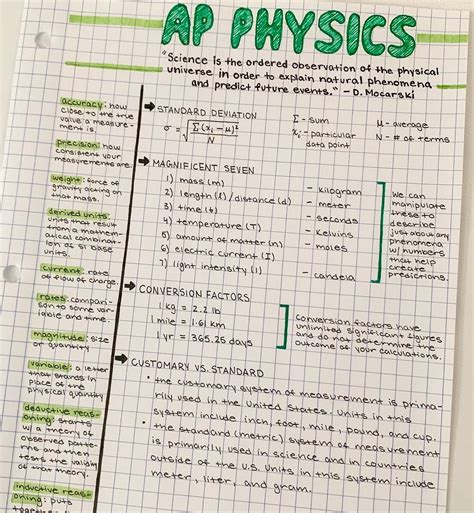 AP PHYSICS
"Science is the ordered observation of the physical
universe in order to explain natural phenomena
and predict future events." - D. Mocarski
accuracy: how
close to the true
value a measure-
ment is.
precision: how
consistent your
measurements are.
weight: force of
gravity acting on
that mass.
derived units:
units that result
from a mathem-
atical combinat-
ion of SI base
units.
current: rate
of flow of charge.
rates: compari-
son to some var-
iable and time.
magnitude: size
or quantity
variable: a letter
that stands in
place of the
physical quantity
deductive reas-
oning: starts
w/ a theory of
observed patte-
rns and then
tests the validity
of that theory.
inductive reas-
oning: puts
→ STANDARD DEVIATION
σ = √(Σ(xᵢ - μ)²/N)
Σ - sum
xᵢ - particular
data point
μ - average
N - # of terms
→ MAGNIFICENT SEVEN
1) mass (m) - kilogram
2) length (l) / distance (d) - meter
3) time (t) - seconds
4) temperature (T) - Kelvins
5) amount of matter (n) - moles
6) electric current (I)
7) light intensity (I) - candela
We can
manipulate
these to
describe
just about any
phenomena
w/ numbers
that help
create
predictions.
→ CONVERSION FACTORS
1 kg = 2.2 lb
1 mile = 1.61 km
1 yr = 365.25 days
Conversion factors have
unlimited significant figures
and do not determine the
outcome of your calculations.
→ CUSTOMARY VS. STANDARD
• the customary system of measurement is prima-
rily used in the United States. Units in this
system include inch, foot, mile, pound, and cup.
• the standard (metric) system of measurement
is primarily used in science and in countries
outside of the U.S. Units in this system include
meter, liter, and gram.